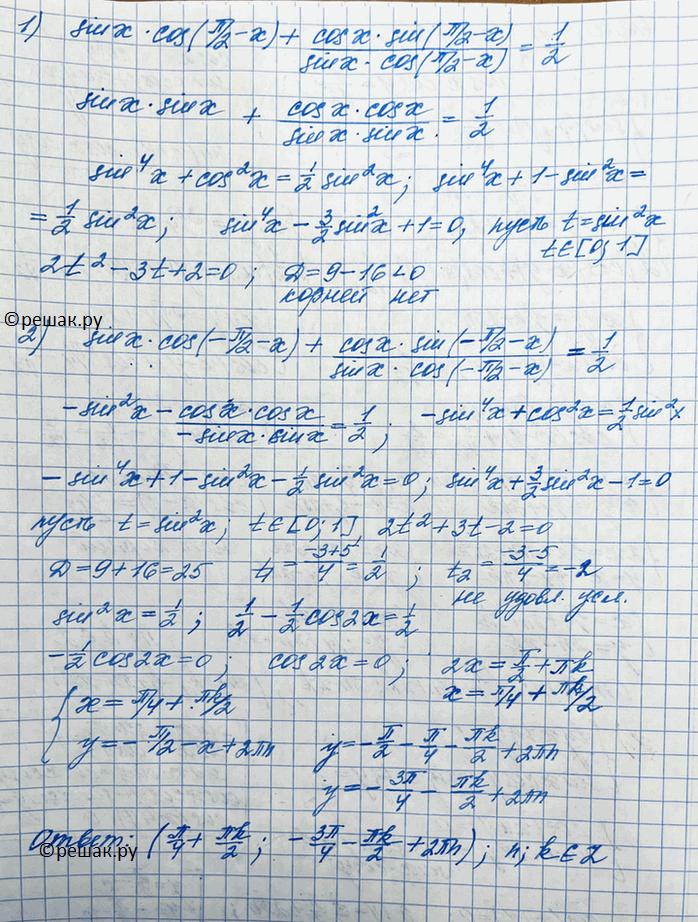 1) sinx · cos(π/2 - x) + (cosx · sin(π/2 - x))/(sinx · cos(π/2 - x)) = 1/2
sinx · sinx + (cosx · cosx)/(sinx · sinx) = 1/2
sin⁴x + cos²x = 1/2 sin²x; sin⁴x + 1 - sin²x =
= 1/2 sin²x; sin⁴x - 3/2 sin²x + 1 = 0, пусть t = sin²x
t ∈ [0; 1]
2t² - 3t + 2 = 0; D = 9 - 16 < 0
корней нет
©решак.ру
2) sinx · cos(-π/2 - x) + (cosx · sin(-π/2 - x))/(sinx · cos(-π/2 - x)) = 1/2
-sin²x - (cosx · cosx)/(-sinx · sinx) = 1/2; -sin⁴x + cos²x = 1/2 sin²x
-sin⁴x + 1 - sin²x - 1/2 sin²x = 0; sin⁴x + 3/2 sin²x - 1 = 0
пусть t = sin²x; t ∈ [0; 1], 2t² + 3t - 2 = 0
D = 9 + 16 = 25 t₁ = (-3+5)/4 = 1/2; t₂ = (-3-5)/4 = -2
не удовл. усл.
sin²x = 1/2; 1/2 - 1/2 cos2x = 1/2
-1/2 cos2x = 0; cos2x = 0; 2x = π/2 + πk
x = π/4 + πk/2
{ x = π/4 + πk/2
y = -π/2 - x + 2πn y = -π/2 - π/4 - πk/2 + 2πn
y = -3π/4 - πk/2 + 2πn
Ответ: (π/4 + πk/2; -3π/4 - πk/2 + 2πn); n; k ∈ Z
©решак.ру